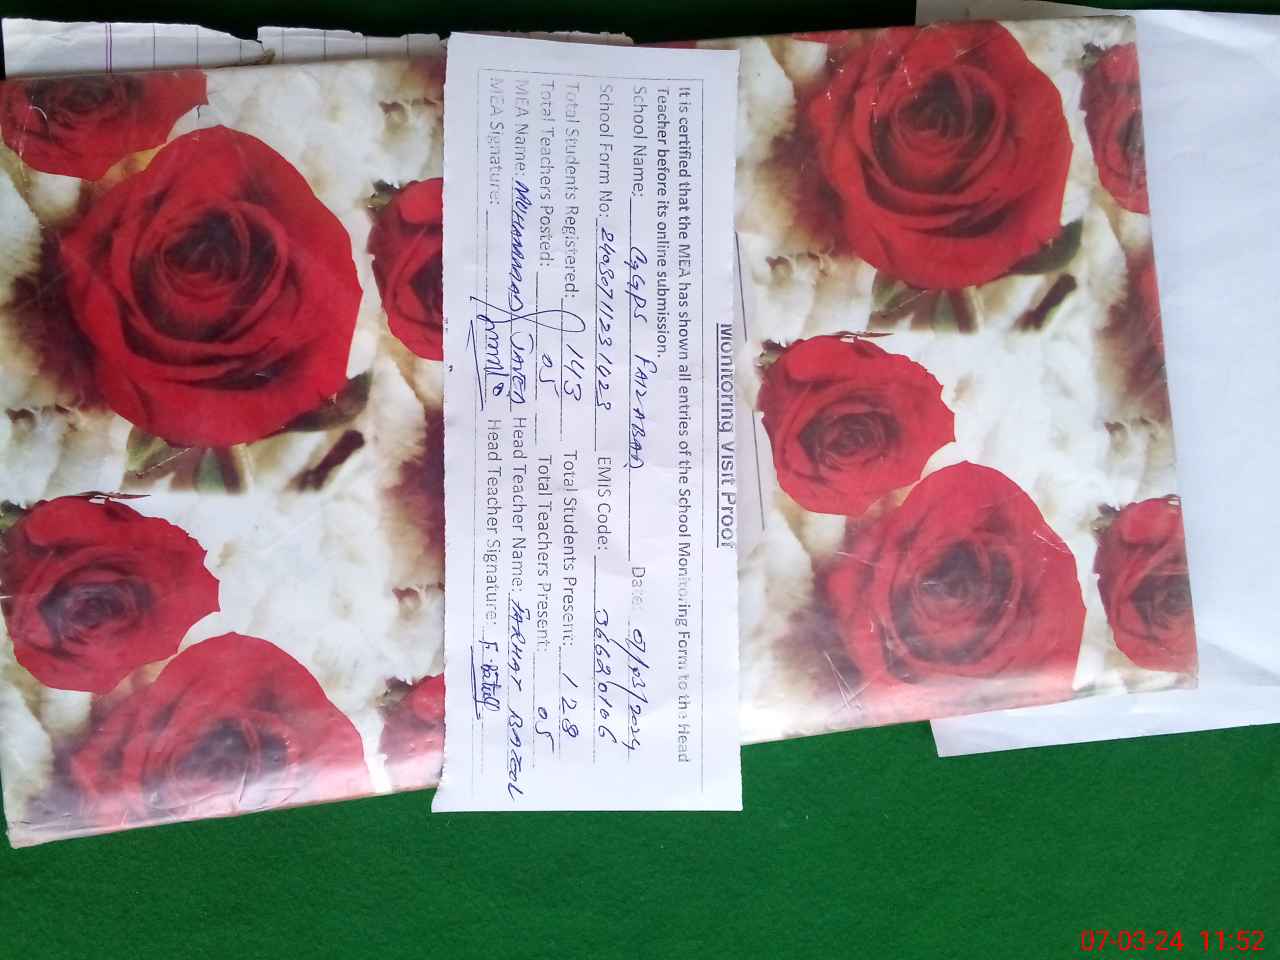 Monitoring Visit Proof
It is certified that the MEA has shown all entries of the School Monitoring Form to the Head
Teacher before its online submission.
School Name: GGPS FAIZABAD Date: 07/03/2024
School Form No: 24080711231423 EMIS Code: 36620106
Total Students Registered: 143 Total Students Present: 128
Total Teachers Posted: 05 Total Teachers Present: 05
MEA Name: MUHAMMAD JAVED Head Teacher Name: FARHAT BATOOL
MEA Signature: Head Teacher Signature: F. Batool
07-03-24 11:52